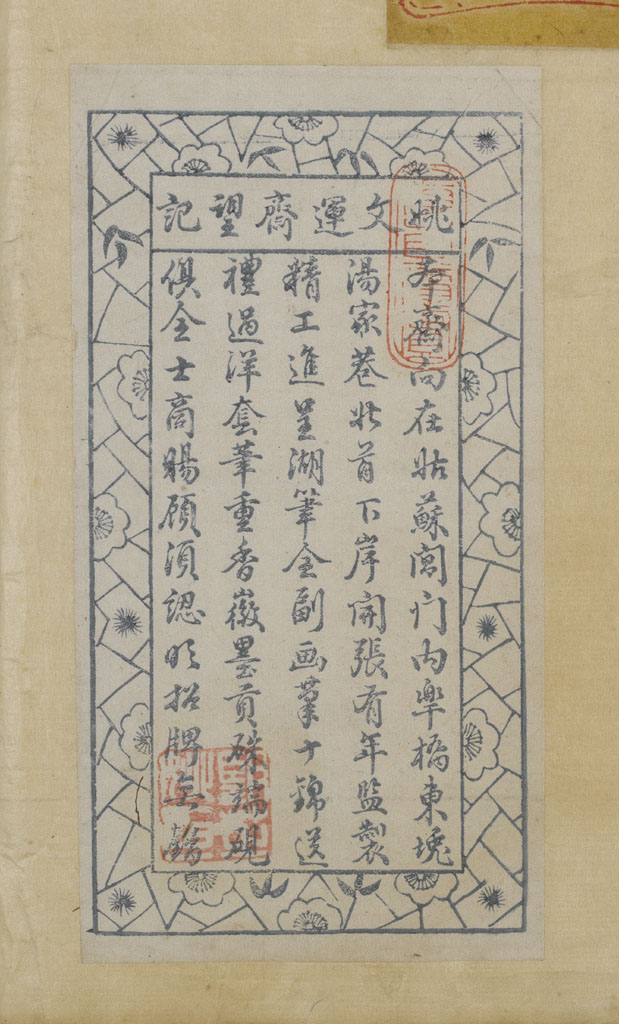 姚文運齋望記
本齋向在姑蘇閶门内皋橋東堍
湯家巷北首下岸開張有年監製
精工進呈湖筆全副画筆十錦送
禮過洋套筆重香徽墨貢硃端硯
俱全士商賜顧須認明招牌無錯